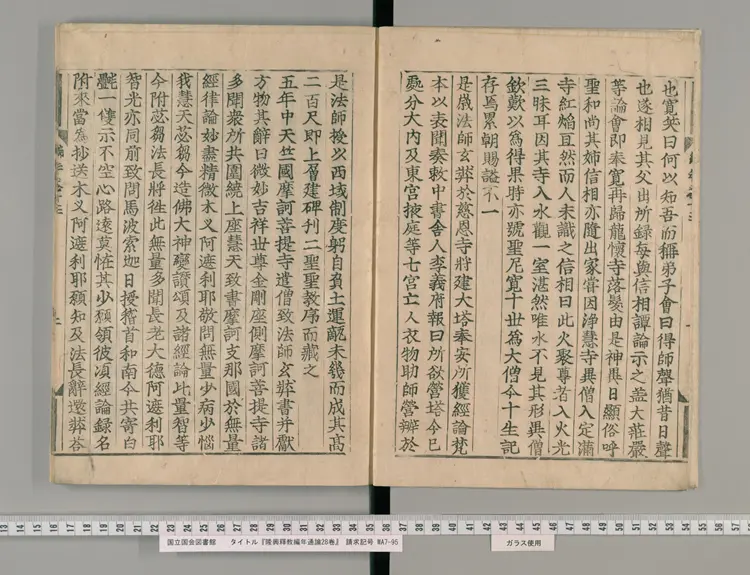 也寬笑曰何以知吾而稱弟子會曰得師聲猶昔日聲
也遂相見其父出所録每與信相譚論示之盖大莊嚴
等論會即奉寬再歸龍懷寺落髮由是神異日顯俗呼
聖和尚其姉信相亦隨出家嘗因淨慧寺異僧入定滿
寺紅焰亘然而人未識之信相曰此火聚尊者入火光
三昧耳因其寺入水觀一室湛然唯水不見其形異僧
欽歎以爲得果時亦號聖尼寬十世爲大僧今十生記
存焉累朝賜謚不一
是歳法師玄弉於慈恩寺將建大塔奉安所獲經論梵
本以表聞奏敕中書舍人李義府報曰所欲營塔今已
處分大內及東宮掖庭等七宮亡人衣物助師營辦於
是法師接以西域制度躬自負土運甎未幾而成其高
二百尺即上層建碑刊二聖聖教序而藏之
五年中天竺國摩訶菩提寺遣僧致法師玄弉書并獻
方物其辭曰微妙吉祥世尊金剛座側摩訶菩提寺諸
多聞衆所共圍繞上座慧天致書摩訶支那國於無量
經律論妙盡精微木叉阿遮利耶敬問無量少病少惱
我慧天苾芻今造佛大神變讃頌及諸經論比量智等
今附苾芻法長將徃此無量多聞長老大德阿遮利耶
智光亦同前致問馬波索迦日授稽首和南今共寄白
㲲一雙示不空心路遠莫恠其少願領彼湏經論録名
附來當爲抄送木叉阿遮利耶願知及法長辭還弉荅
13 14 15 16 17 18 19 20 21 22 23 24 25 26 27 28 29 30 31 32 33 34 35 36 37 38 39 40 41 42 43 44 45 46 47 48 49 50 51 52 53 54 55 56 57
国立国会図書館 タイトル『隆興釋教編年通論28巻』 請求記号 WA7-95
ガラス使用